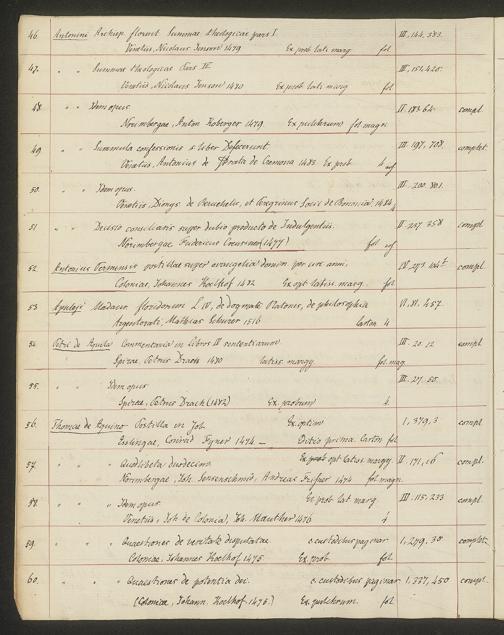 46. Antonini Archiep. florent Summae theologicae pars I. III. 144. 383.
Venetiis, Nicolaus Jenson 1479 Ex prob lati marg fol
47. " " Summae theologicae Pars IV. III. 151. 425.
Venetiis, Nicolaus Jenson 1480 Ex prob lati marg fol
48. " " Idem opus II 183 64. compl.
Norimbergae, Anton Koberger 1479 Ex pulchrum fol magn
49 " " Summula confessionis s liber Defecerunt III. 197, 708. complet.
Venetiis, Antonius de Strata de Cremona 1483 Ex prob 4
50. " " Idem opus. III. 200. 801.
Venetiis, Dionys de et Peregrinus de Bononia 1484
51 " " Decisio consiliaris super dubio producto de Indulgentiis. II 207. 358 compl.
Norimbergae Fridericus Creussner (1477) fol
52 Antonius Parmensis postillae super evangelia domin. per circ anni. IV 293. compl.
Coloniae, Johannes Koelhof 1482 Ex opt latiss. marg. fol
53 Apuleji Madaur floridorum L IV, de dogmate Platonis, de philosophia IV. XI. 457.
Argentorati, Mathias Schurer 1516 Carton 4
54 Petri de Aquila Commentaria in libros IV sententiarum III. 20. 12 compl
Spirae, Petrus Drach 1480 latiss. margg fol mag
55. " Idem opus III. 27. 50.
Spirae, Petrus Drach (1482) Ex. probum 4
56. Thomae de Aquino Postilla in Job. Ex optim I, 379, 3 compl
Esslingae, Conrad Fyner 1474. — Editio princ. Carton fol
57. " " Quodlibeta duodecim Ex opt latiss. margg II. 171, 16 compl.
Norimbergae, Joh. Sensenschmid, Andreas Frisner 1474 fol magn.
58. " " Idem opus Ex prob lat marg III. 115. 233 compl.
Venetiis, Joh de Colonia, Joh. Manther 1476 4
59. " " Quaestiones de veritate disputatae c. custodibus paginar I, 279, 30 complet.
Coloniae, Johannes Koelhof 1475 Ex prob fol
60. " " Quaestiones de potentia dei. c. custodibus paginar I, 337, 450 compl.
(Coloniae, Johann. Koelhof 1475.) Ex. pulchrum. fol